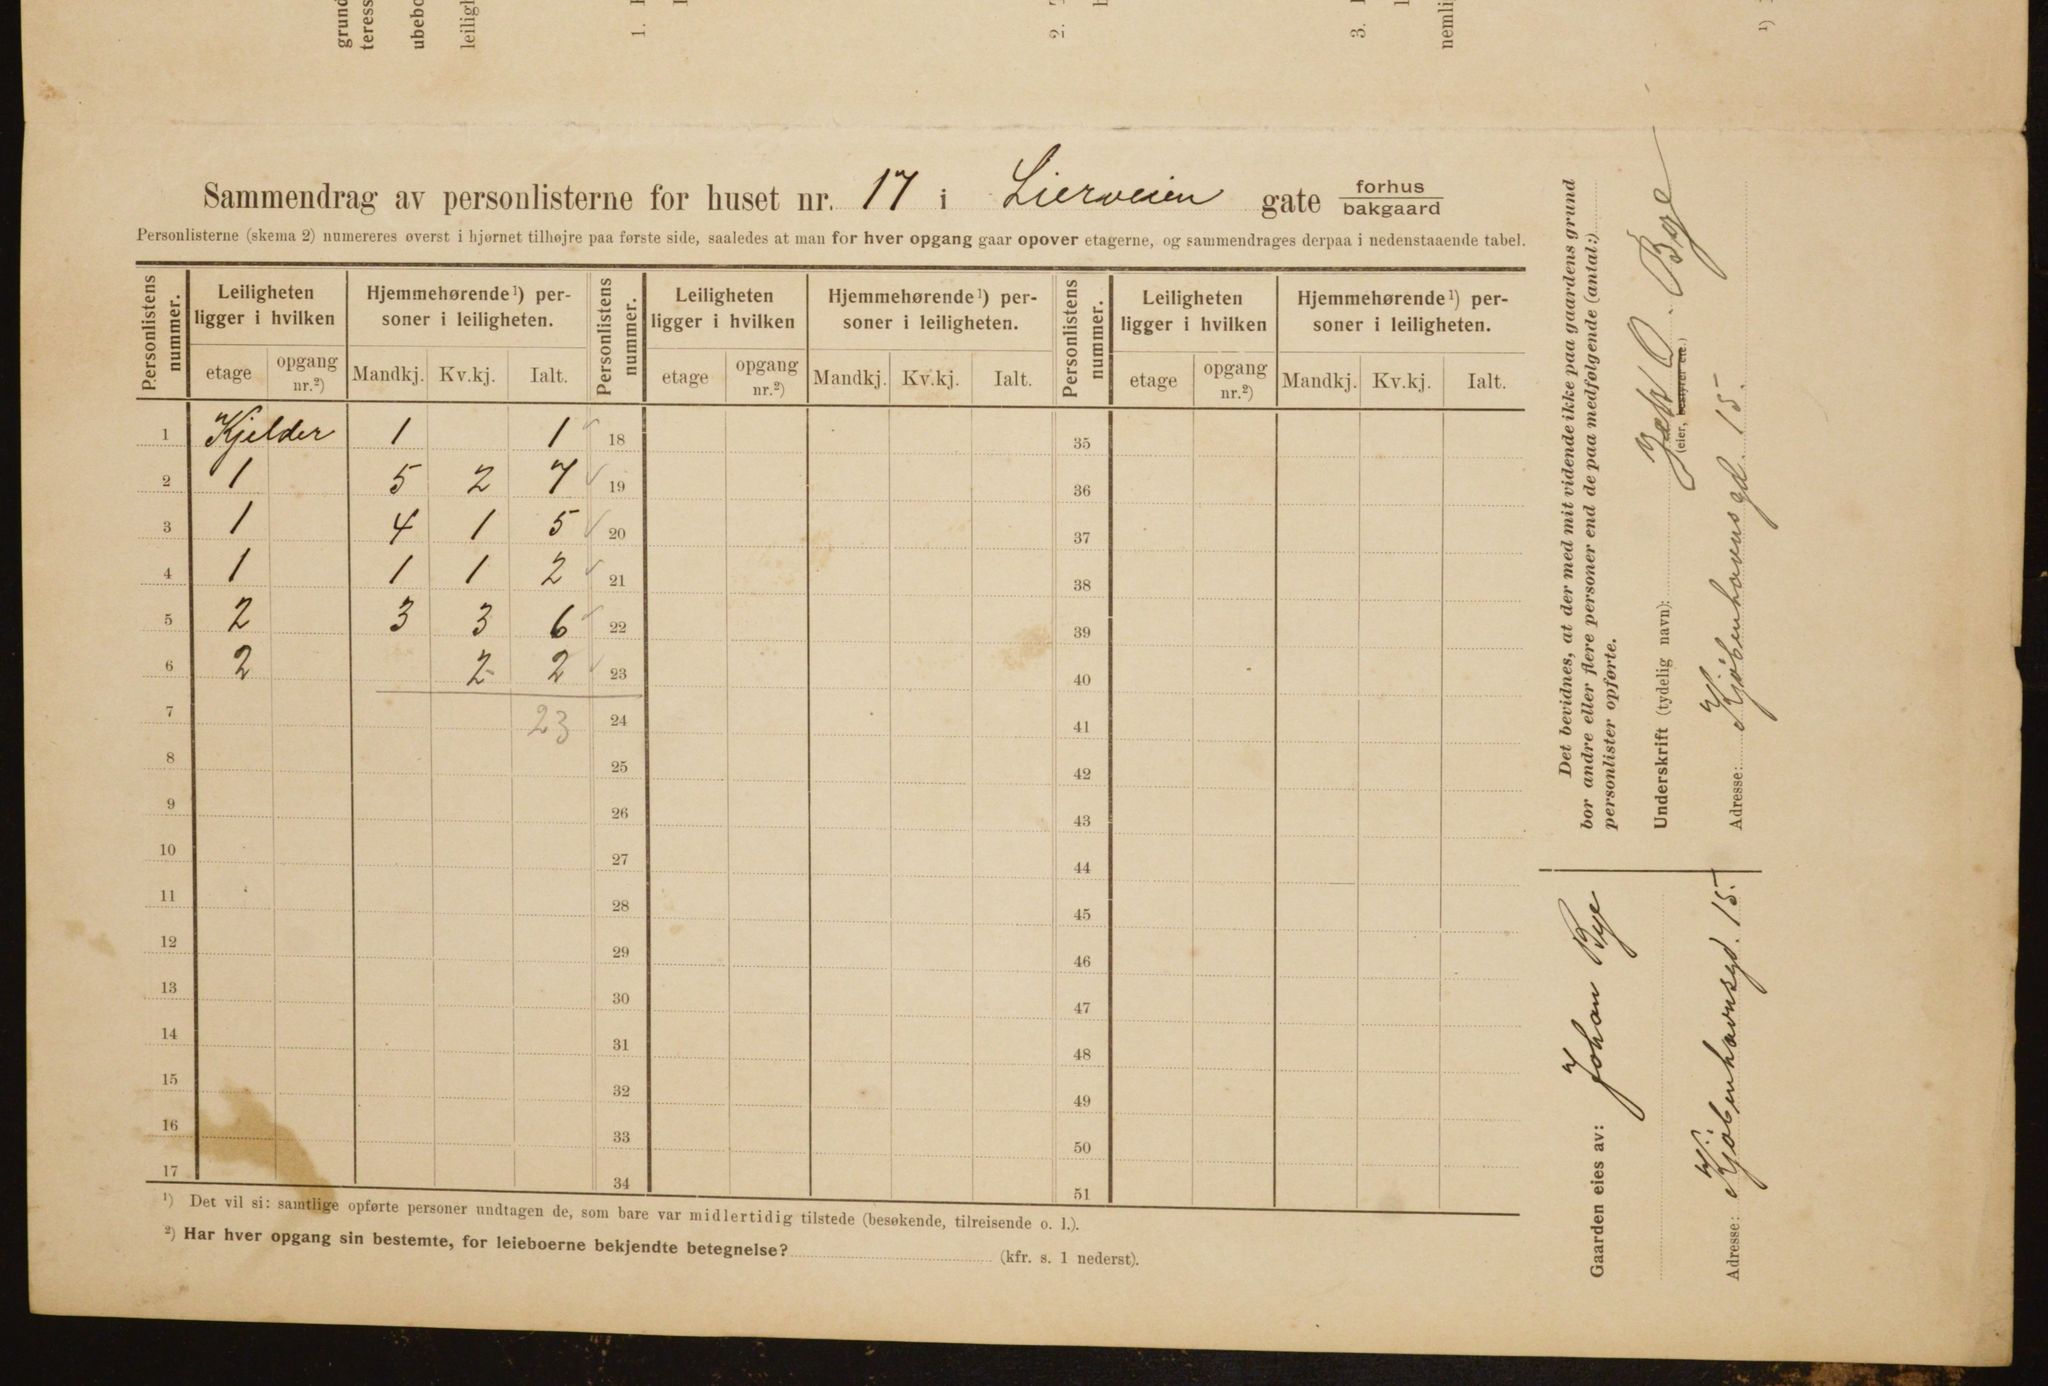 grund
teress
ubebo
leiligh
1.
2.
3.
nemli
1)
Sammendrag av personlisterne for huset nr. 17 i Lierveien gate forhus
bakgaard
Personlisterne (skema 2) numereres øverst i hjørnet tilhøjre paa første side, saaledes at man for hver opgang gaar opover etagerne, og sammendrages derpaa i nedenstaaende tabel.
Personlistens nummer. Leiligheten ligger i hvilken Hjemmehørende 1) personer i leiligheten. Personlistens nummer. Leiligheten ligger i hvilken Hjemmehørende 1) personer i leiligheten. Personlistens nummer. Leiligheten ligger i hvilken Hjemmehørende 1) personer i leiligheten.
etage opgang nr.2) Mandkj. Kv.kj. Ialt. etage opgang nr.2) Mandkj. Kv.kj. Ialt. etage opgang nr.2) Mandkj. Kv.kj. Ialt.
1 Kjelder 1 1 18 35
2 1 5 2 7 19 36
3 1 4 1 5 20 37
4 1 1 1 2 21 38
5 2 3 3 6 22 39
6 2 2 2 23 40
7 23 24 41
8 25 42
9 26 43
10 27 44
11 28 45
12 29 46
13 30 47
14 31 48
15 32 49
16 33 50
17 34 51
1) Det vil si: samtlige opførte personer undtagen de, som bare var midlertidig tilstede (besøkende, tilreisende o. l.).
2) Har hver opgang sin bestemte, for leieboerne bekjendte betegnelse? (kfr. s. 1 nederst).
Det bevidnes, at der med mit vidende ikke paa gaardens grund
bor andre eller flere personer end de paa medfølgende (antal:)
personlister opførte.
Underskrift (tydelig navn): O. Bye
(eier, bestyrer etc.)
Adresse: Kjøbenhavnsgd. 15.
Gaarden eies av: Johan Bye
Adresse: Kjøbenhavnsgd. 15.